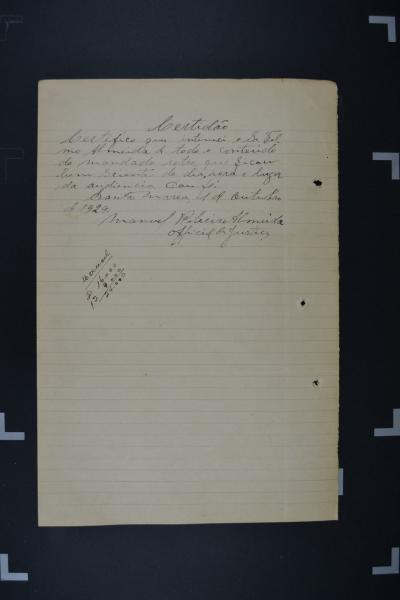 Certidão
Certifico que intimei o Sr. Tel
mo Almeida de todo o conteudo
do mandado retro, que ficou
bem sciente do dia, hora e lugar
da audiencia. Dou fé.
Santa Maria, de Outubro
de 1929.
Manoel Ribeiro Almeida
Official de Justiça
8 16.000